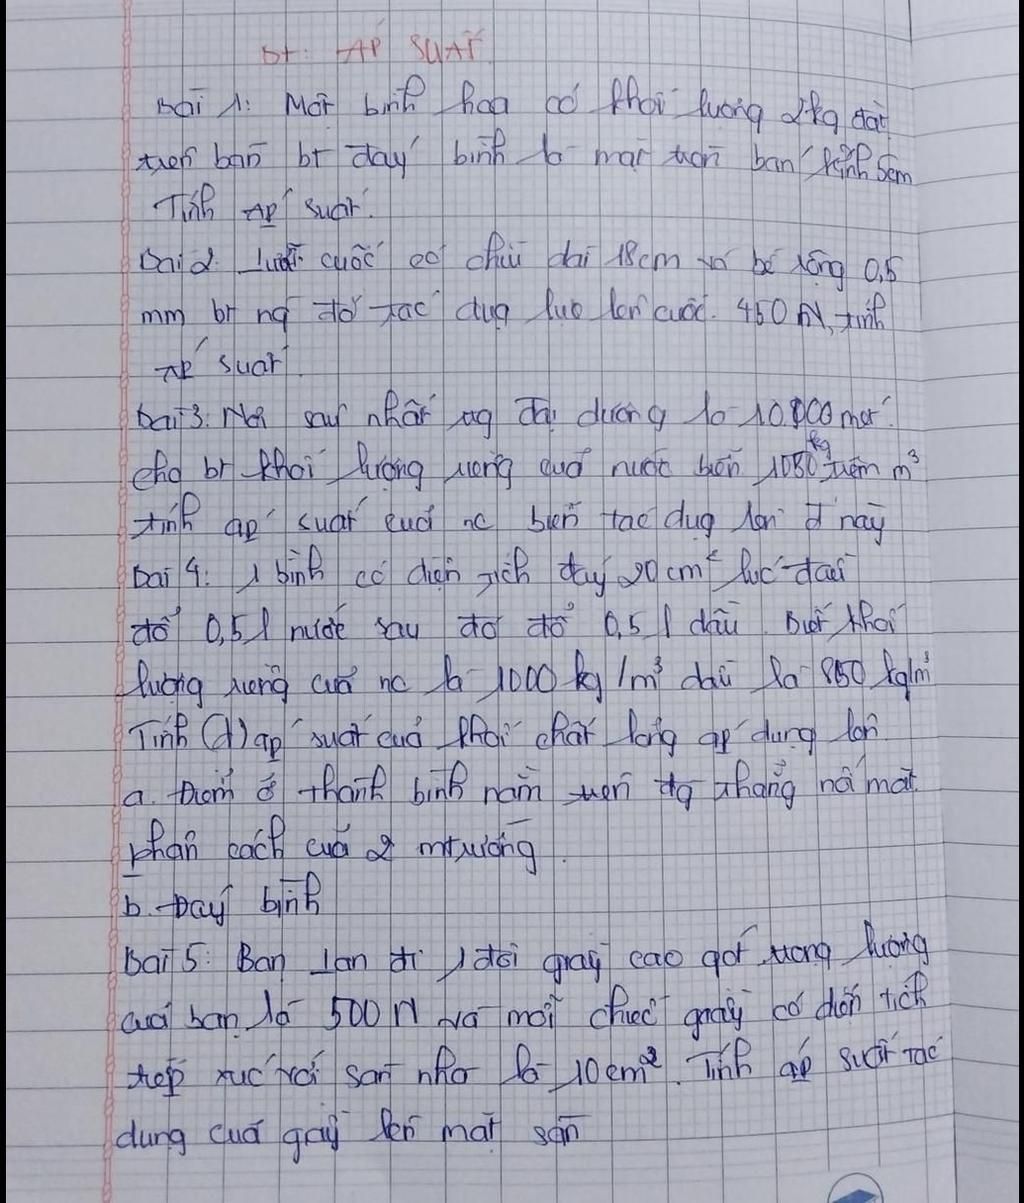 BT: ÁP SUẤT
Bài 1: Một bình hoa có khối lượng 2kg đặt
trên bàn bt đáy bình là mặt tròn bán kính 5cm
Tính áp suất.
Bài 2. Lưỡi cuốc có chiều dài 18cm và bề rộng 0,5
mm bt ng đó tác dụg lực lên cuốc. 450 N, tính
áp suất
Bài 3. Nơi sâu nhất đại dương là 10.000 mét.
cho bt khối lượng riêng của nước biển 1030 kg trên m³
tính áp suất của nc biển tác dụg lên ở này
Bài 4: 1 bình có diện tích đáy 20 cm² lúc đầu
đổ 0,5 l nước sau đó đổ 0,5 l dầu. Biết khối
lượng riêng của nc là 1000 kg/m³ dầu là 850 kg/m³
Tính (d) áp suất của khối chất lỏng áp dụng lên.
a. Điểm ở thành bình nằm trên đg thẳng nối mặt
phân cách của 2 mtrường.
b. Đáy bình
Bài 5: Bạn Lan đi 1 đôi giày cao gót trọng lượng
của bạn là 500 N và mỗi chiếc giày có diện tích
tiếp xúc với sàn nhà là 10cm². Tính áp suất tác
dụng của giày lên mặt sàn